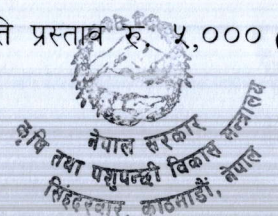 प्रस्ताव रु. ५,००० (
नेपाल सरकार
कृषि तथा पशुपन्छी विकास मन्त्रालय
सिंहदरबार, काठमाडौं, नेपाल